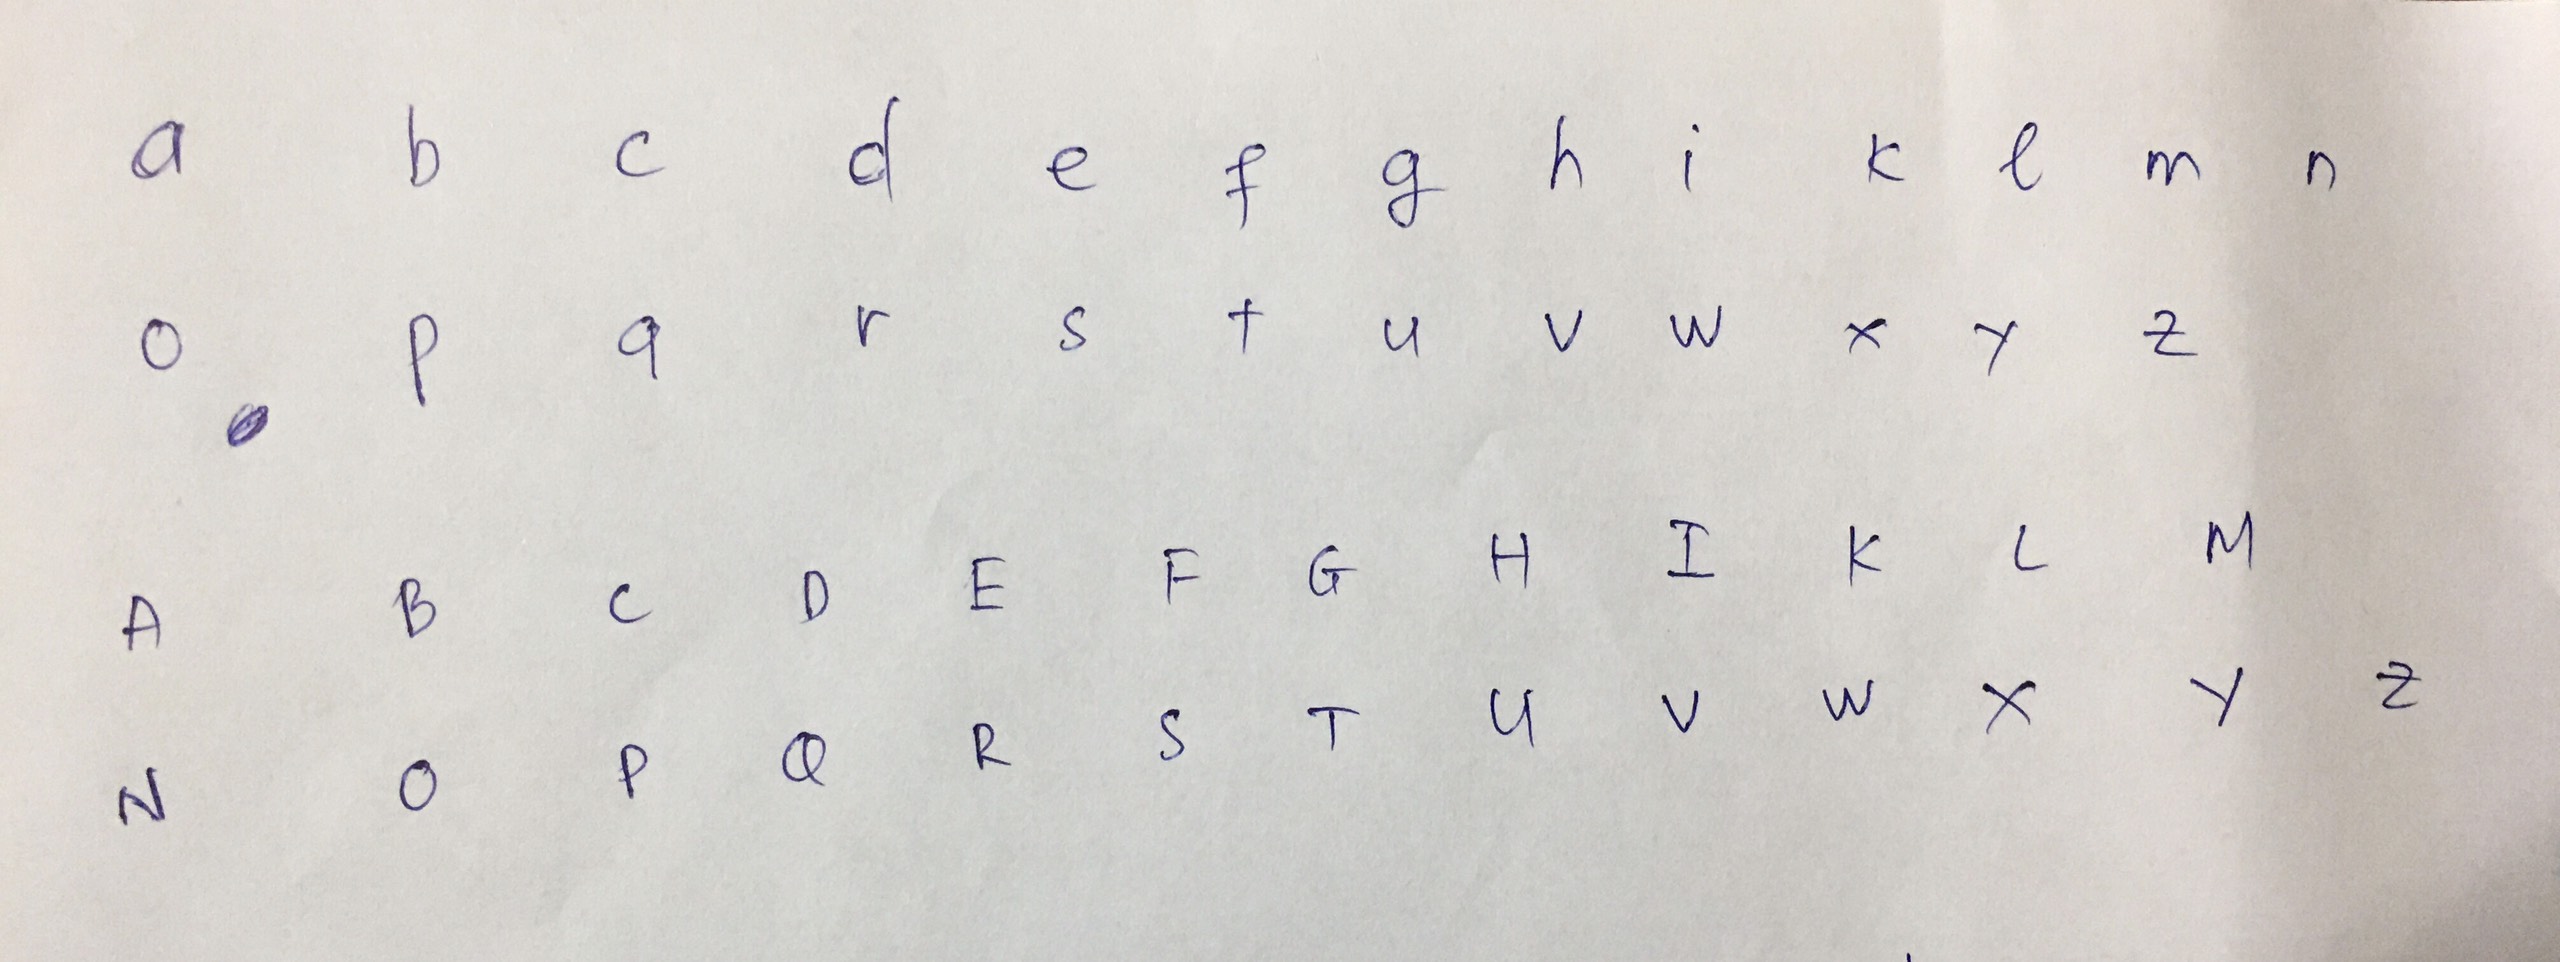 a b c d e f g h i k l m n
o p q r s t u v w x y z
A B C D E F G H I K L M
N O P Q R S T U V W X Y Z